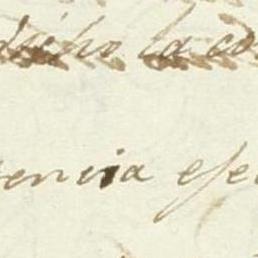 dicho la co
tencia efe